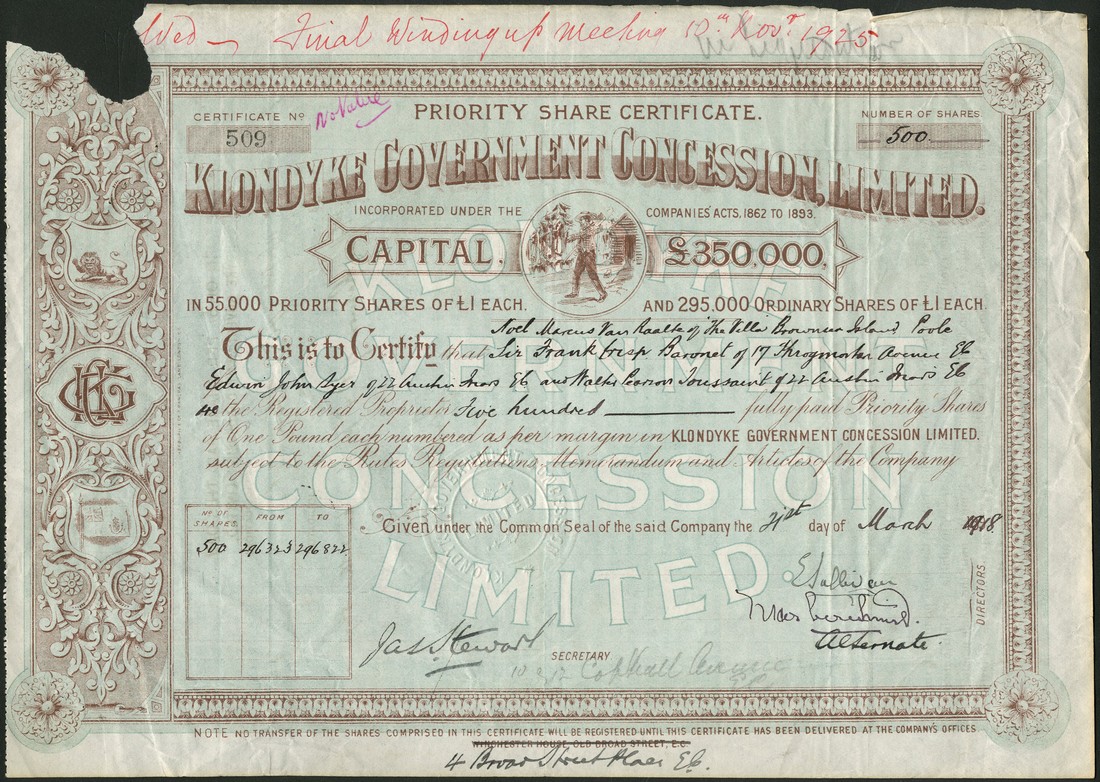 lved — Final Winding up meeting 10th Novr 1925
PRIORITY SHARE CERTIFICATE.
CERTIFICATE No
509
No Value
NUMBER OF SHARES.
500.
KLONDYKE GOVERNMENT CONCESSION, LIMITED.
INCORPORATED UNDER THE COMPANIES' ACTS, 1862 TO 1893.
CAPITAL. £350,000.
IN 55,000 PRIORITY SHARES OF £1 EACH. AND 295,000 ORDINARY SHARES OF £1 EACH.
Noel Marcus Van Raalte of The Villa Brownsea Island Poole
This is to Certify that Sir Frank Crisp Baronet of 17 Throgmorton Avenue EC
Edwin John Ayer of 22 Austin Friars EC and Walter Pearson Toussaint of 22 Austin Friars EC
the Registered Proprietor Five hundred fully paid Priority Shares
of One Pound each numbered as per margin in KLONDYKE GOVERNMENT CONCESSION LIMITED.
subject to the Rules Regulations Memorandum and Articles of the Company
KLONDYKE
GOVERNMENT
CONCESSION
LIMITED.
KCG
No OF SHARES. FROM TO
500 296323 296822
Given under the Common Seal of the said Company the 21st day of March 1918.
E Sullivan
Alternate
DIRECTORS.
Jas Stewart
SECRETARY
Copthall Avenue
NOTE NO TRANSFER OF THE SHARES COMPRISED IN THIS CERTIFICATE WILL BE REGISTERED UNTIL THIS CERTIFICATE HAS BEEN DELIVERED AT THE COMPANY'S OFFICES
WINCHESTER HOUSE, OLD BROAD STREET, E.C.
4 Broad Street Place EC.